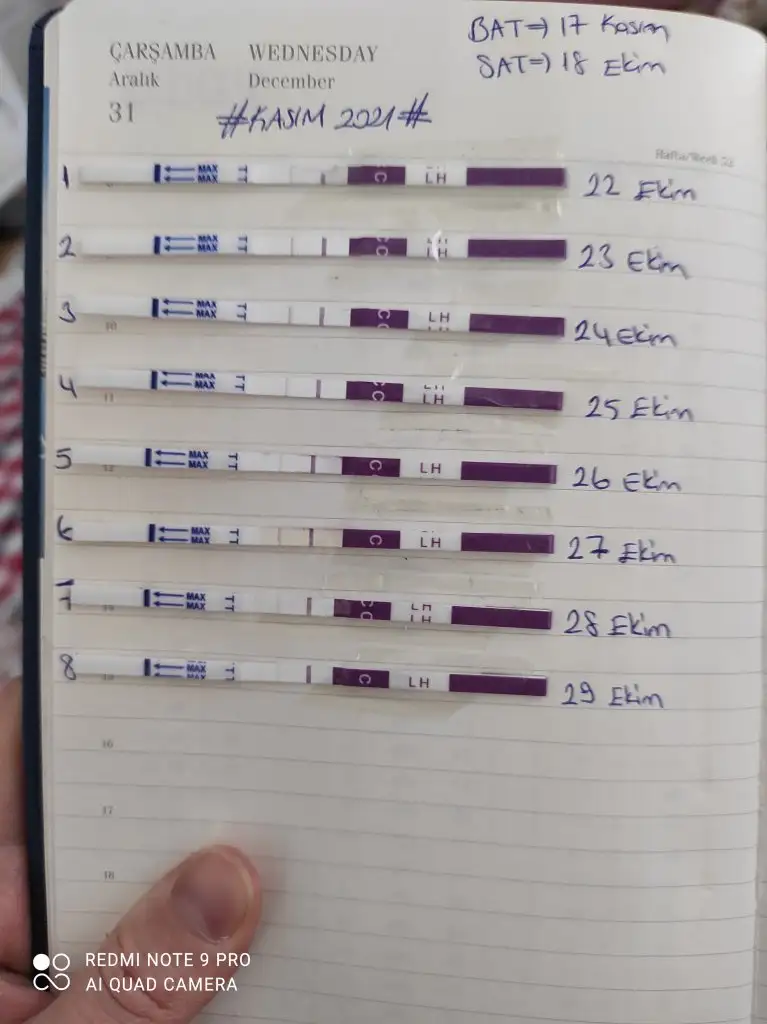 BAT⇒ 17 Kasım
SAT⇒ 18 Ekim
ÇARŞAMBA WEDNESDAY
Aralık December
31 #KASIM 2021#
Hafta/Week
1 MAX MAX T T C LH 22 Ekim
2 MAX MAX T T C C LH 23 Ekim
3 MAX MAX T T C LH 24 Ekim
10
4 MAX MAX T T C LH 25 Ekim
11
5 MAX MAX T T C LH 26 Ekim
12
6 MAX MAX T T C LH 27 Ekim
7 MAX MAX T T C LH 28 Ekim
8 MAX MAX T T C LH 29 Ekim
16
17
18
REDMI NOTE 9 PRO
AI QUAD CAMERA